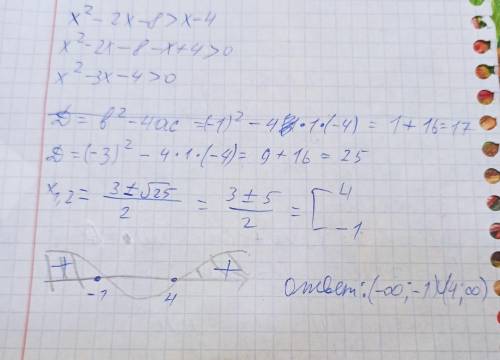 x² - 2x - 8 > x - 4
x² - 2x - 8 - x + 4 > 0
x² - 3x - 4 > 0
D = b² - 4ac = (-1)² - 4 · 1 · (-4) = 1 + 16 = 17
D = (-3)² - 4 · 1 · (-4) = 9 + 16 = 25
x₁,₂ = (3 ± √25)/2 = (3 ± 5)/2 = [ 4 -1
+ +
-1 4
Ответ: (-∞; -1)∪(4; ∞)